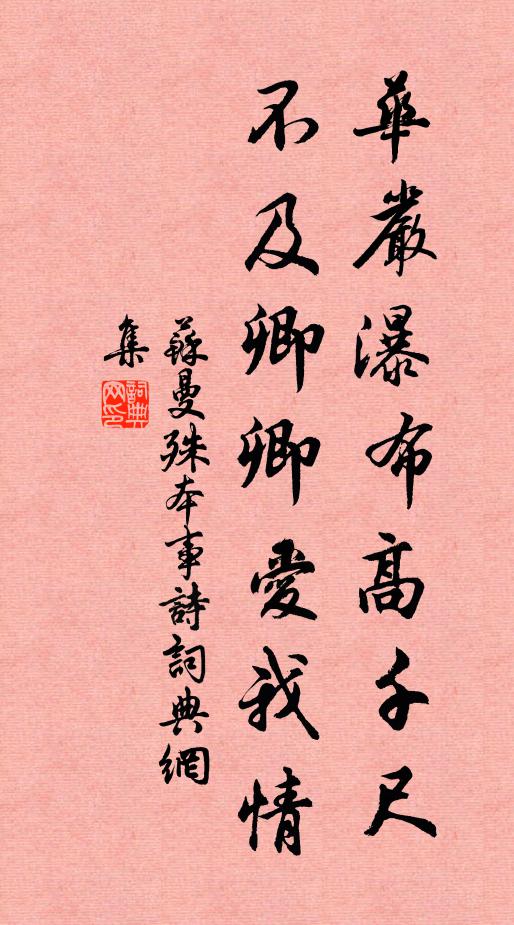 華嚴瀑布高千尺
不及卿卿愛我情
蘇曼殊本事詩詞典網
集
詞典網印